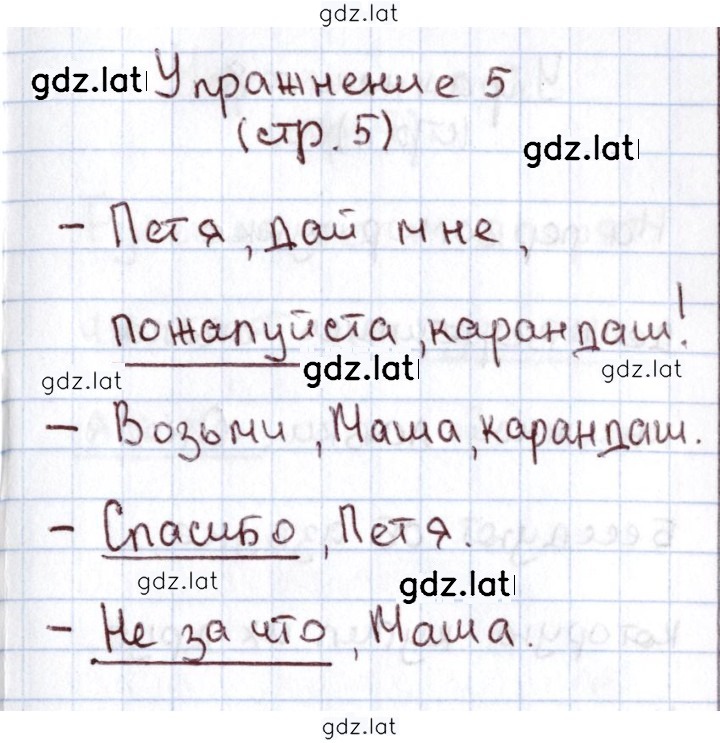 gdz.lat
gdz.lat Упражнение 5
(стр. 5) gdz.lat
– Петя, дай мне,
пожалуйста, карандаш!
gdz.lat gdz.lat gdz.lat
– Возьми, Маша, карандаш.
– Спасибо, Петя.
gdz.lat gdz.lat
– Не за что, Маша.
gdz.lat